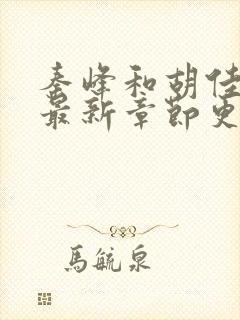 秦峰和胡佳
最新章节更
馬毓泉